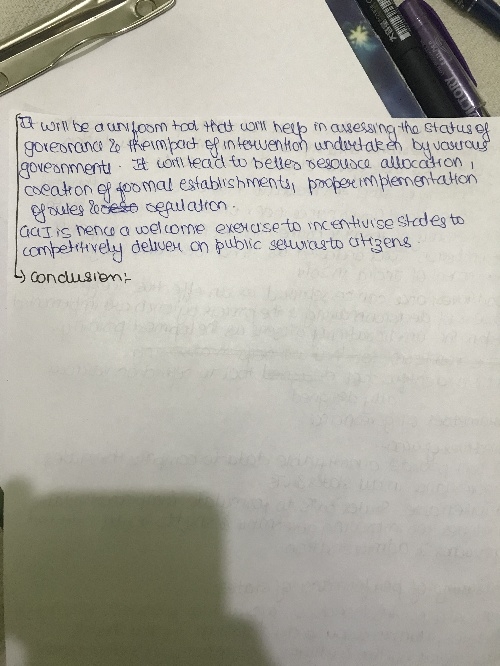 It will be a uniform tool that will help in assessing the status of
governance & the impact of intervention undertaken by various
governments. It will lead to better resource allocation,
creation of formal establishments, proper implementation
of rules & regulation.
GGI is hence a welcome exercise to incentivise states to
competitively deliver on public services to citizens.
↳ Conclusion:-